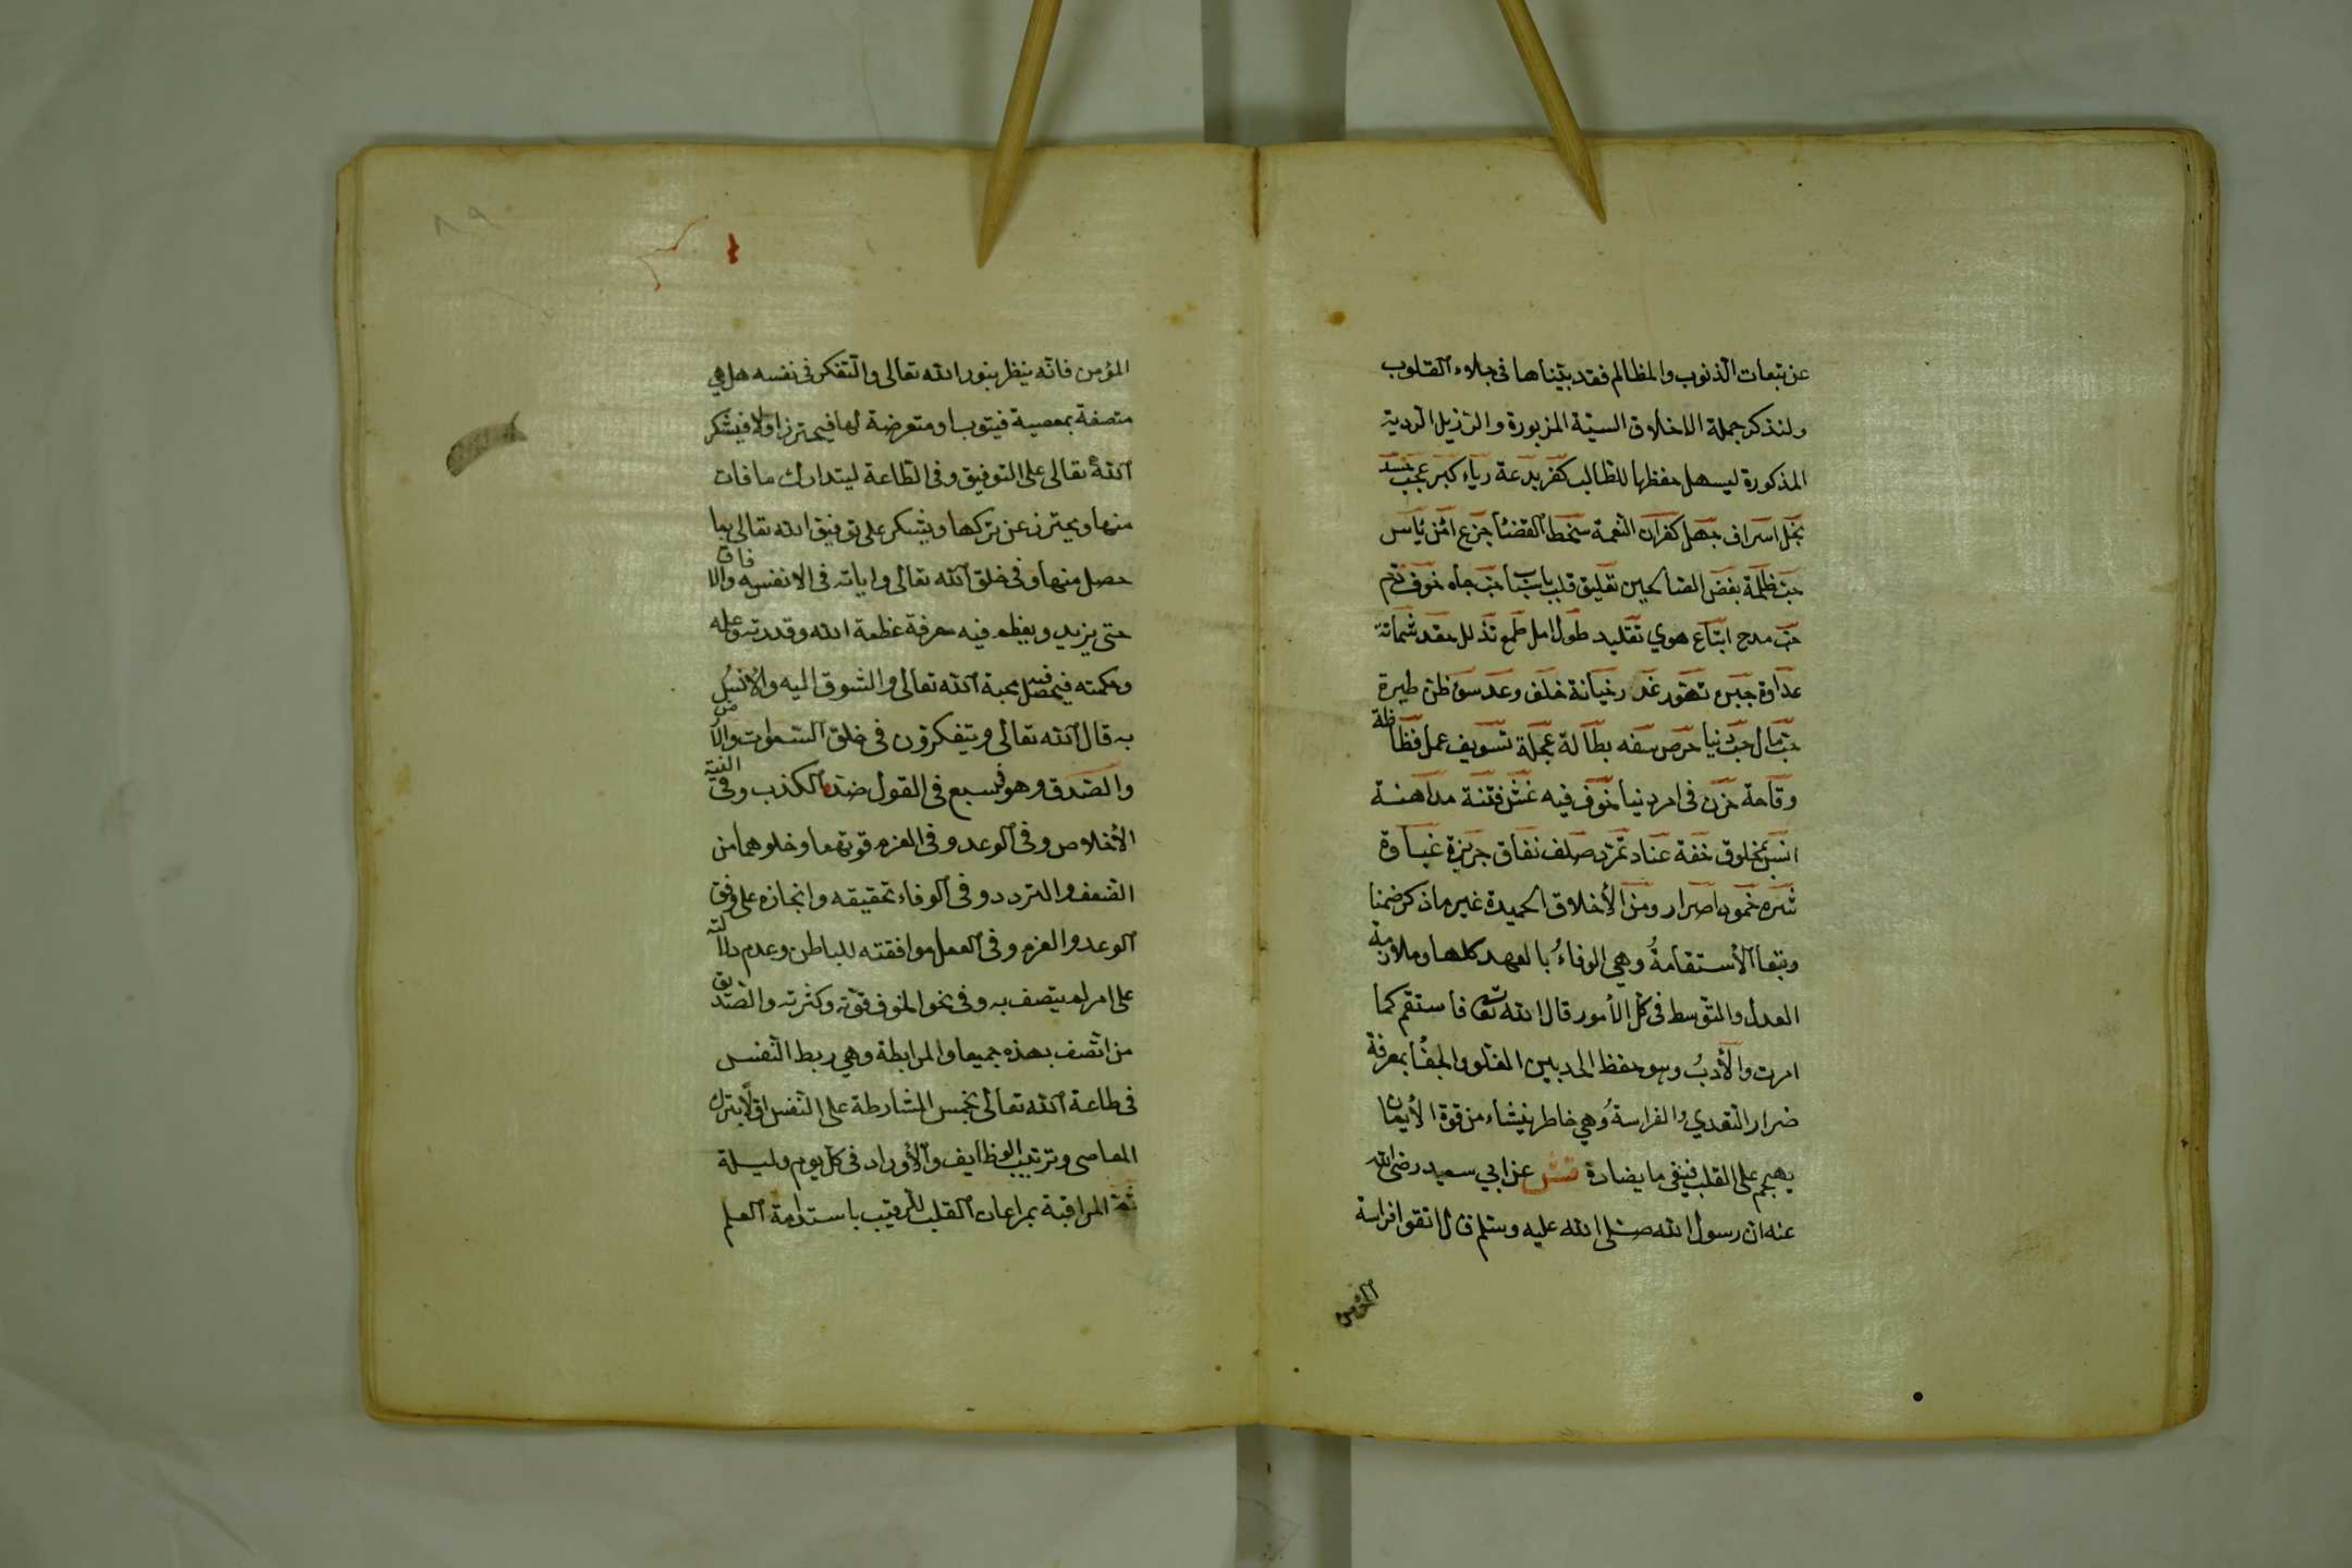 عن تبعات الذنوب والمظالم فقد بيّناها فى جلاء القلوب
ولنذكر جملة الاخلاق السيّة المزبورة والرذيل الرديّة
المذكورة ليسهل حفظها للطالب كفر بدعة رياء كبر عجب حسد
بخل اسراف جهل كفران النعمة سخط القضأ جزع امن يأس
حبّ ظلمة بغض الصالحين تعليق قلب باسباب حبّ جاه خوف ذم
حبّ مدح اتباع هوي تقليد طول امل طمع تذلل حقد شماتة
عداوة جبن تهوّر غدر خيانة خلف وعد سوء ظن طيرة
حبّ مال حبّ دنيا حرص سفه بطالة عجلة تسويف عمل فظاظة
وقاحة حزن فى امر دنيا خوف فيه غش فتنة مداهنة
انس بمخلوق خفة عناد تمرّد صلف نفاق جربزة غباوة
شره خمود اصرار ومن الأخلاق الحميدة غير ما ذكر ضمنا
وتبعا الأستقامةُ وهى الوفاءُ بالعهد كلها وملازمة
العدل والتوسط فى كل الأمور قال الله تعا فاستقم كما
امرت والأدبُ وهو حفظ الحد بين الغلو والجفأ بمعرفة
ضرار التعدي والفراسةُ وهي خاطر ينشاء من قوة الأيمان
يهجم على القلب فينفى ما يضادة عن ابي سعيد رضى الله
عنه ان رسول الله صلى الله عليه وسلم قال اتقوا فراسة
المؤمن
المؤمن فانّه ينظر بنور الله تعالى والتفكر فى نفسه هل هي
متصفة بمعصية فيتوب او متعرضة لها فيحترز او لا فيشكر
الله تعالى على التوفيق وفى الطاعة ليتدارك ما فات
منها ويحترز عن تركها ويشكر على توفيق الله تعالى بما
حصل منها وفى خلق الله تعالى واياته فى الانفسيه والافاق
حتى يزيد ويعظم فيه معرفة عظمة الله وقدرته وعلمه
وحكمته فيحصل فيه محبة الله تعالى والشوق اليه والأنس
به قال الله تعالى ويتفكرون فى خلق السموات والارض
والصدق وهو فى سبع فى القول ضد الكذب وفى النية
الأخلاص وفى الوعد وفى العزم قوتهما وخلوهما من
الضعف والتردد وفى الوفاء تحقيقه وانجازه على وفق
الوعد والعزم وفى العمل موافقته للباطن وعدم دلالته
على امر لم يتصف به وفى نحو الخوف قوّته وكثرته والصّديق
من اتصف بهذه جميعا والمرابطة وهي ربط النفس
فى طاعة الله تعالى بخمس المشارطة على النفس اوّلا بترك
المعاصى وترتيب الوظايف والأوراد فى كل يوم وليلة
ثم المراقبة بمراعات القلب للرقيب باستدامة العلم